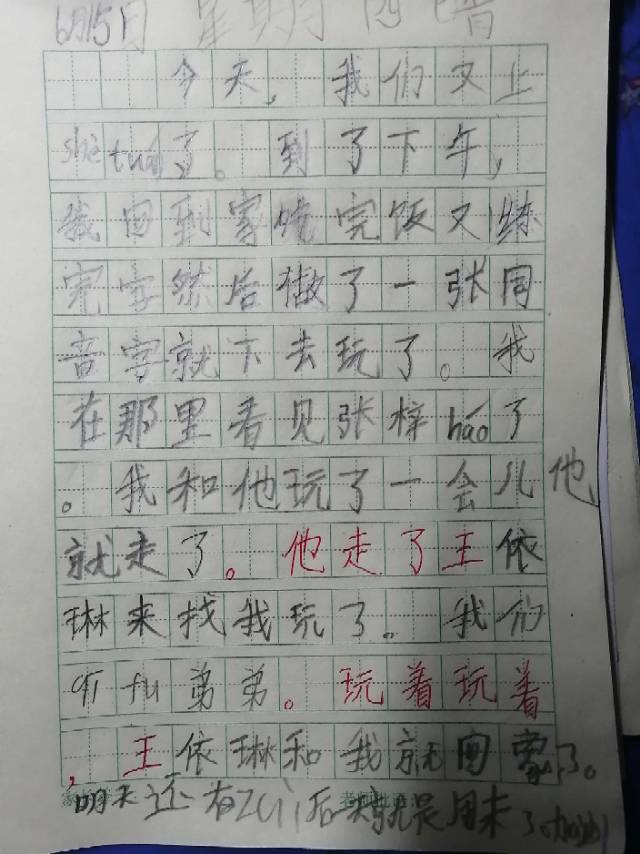 6月15日 星期四 晴
今天,我们又上
shè tuán了。到了下午,
我回到家吃完饭又练
完字然后做了一张同
音字就下去玩了。我
在那里看见张梓háo了
。我和他玩了一会儿他
就走了。他走了王依
琳来找我玩了。我们
qī fu弟弟。玩着玩着
,王依琳和我就回家了。
明天还有zuì后一天就是周末了。加油!